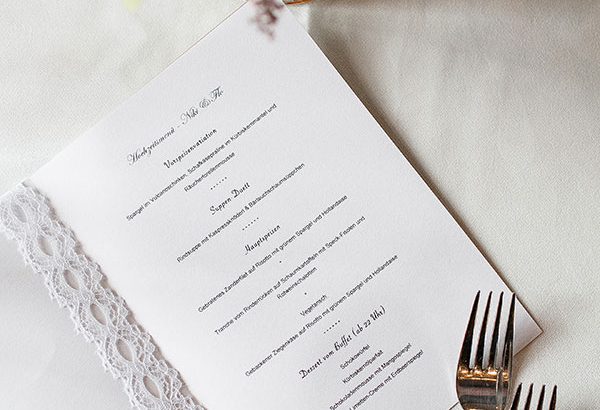 Hochzeitsmenü - Niki & Flo
Vorspeisenvariation
Spargel im Vulcanoschinken, Schafkäsepraline im Kürbiskernmantel und
Räucherforellenmousse
......
Suppen Duett
Rindsuppe mit Kaspressknöderl & Bärlauchschaumsüppchen
......
Hauptspeisen
Gebratenes Zanderfilet auf Risotto mit grünem Spargel und Hollandaise
*
Tranche vom Rinderrücken auf Schaumkartoffeln mit Speck-Fisolen und
Rotweinschalotten
*
Vegetarisch
Gebackener Ziegenkäse auf Risotto mit grünem Spargel und Hollandaise
......
Dessert vom Buffet (ab 22 Uhr)
Schokowürfel
Kürbiskernölparfait
Schokoladenmousse mit Mangospiegel
Limetten-Creme mit Erdbeerspiegel